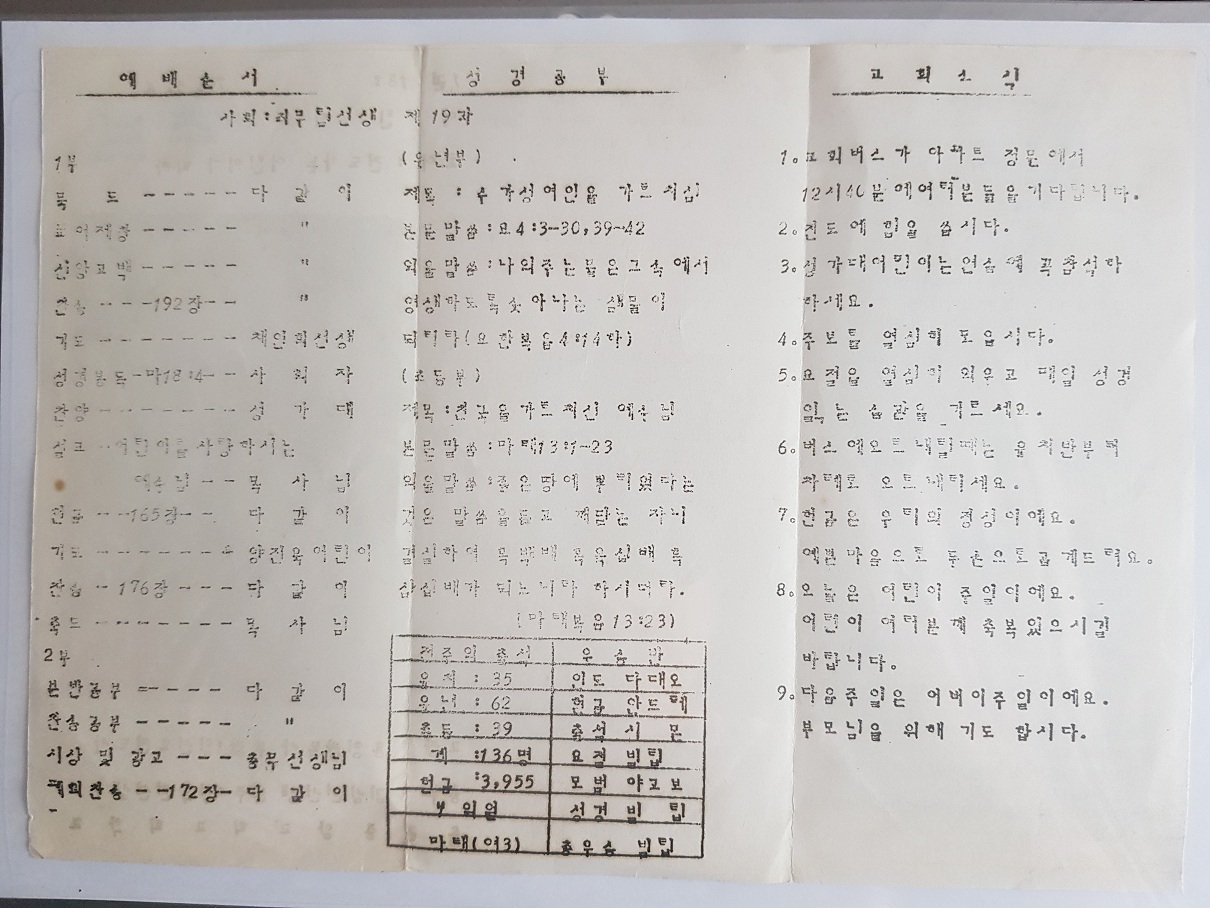 예 배 순 서
사회:최무림선생
1부
묵 도 ----- 다 같 이
표어제창 ----- "
신앙고백 ----- "
찬송 ---192장-- "
기도 ------- 채인희선생
성경봉독 -마18:4-- 사 회 자
찬양 ------- 성 가 대
설교 --어린이를사랑하시는
예수님 -- 목 사 님
헌금 --165장-- 다 같 이
기도 ------- 양진욱어린이
찬송 -176장--- 다 같 이
축도 ------- 목 사 님
2부
분반공부 ----- 다 같 이
찬송공부 ----- "
시상 및 광고 --- 총무선생님
폐회찬송 --172장- 다 같 이
성 경 공 부
제 19과
(유년부)
제목 : 수가성여인을 가르치심
본문말씀:요4:3-30,39-42
외울말씀:나의주는물은그속에서
영생하도록솟아나는 샘물이
되리라(요한복음4:14하)
(초등부)
제목:천국을가르치신 예수님
본문말씀:마태13:1-23
외울말씀:좋은땅에뿌리었다는
것은 말씀을듣고 깨닫는 자니
결실하여 혹백배 혹육십배 혹
삼십배가 되느니라 하시더라.
(마태복음13:23)
전주의 출석 우 승 반
유치 : 35 인도 다대오
유년 : 62 헌금 안드레
초등 : 39 출석 시 몬
계 :136명 요절 빌립
헌금 :3,955 모범 야고보
일원 성경 빌 립
마태(여3) 총우승 빌립
교 회 소 식
1.교회버스가 아파트 정문에서
12시40분에여러분들을기다립니다.
2.전도에 힘을 씁시다.
3.성가대어린이는연습에 꼭참석하
하세요.
4.주보를 열심히 모읍시다.
5.요절을 열심히 외우고 매일 성경
읽는 습관을 기르세요.
6.버스에오르내릴때는 유치반부터
차례로 오르내리세요.
7.헌금은 우리의 정성이에요.
예쁜마음으로 두손으로곱게드려요.
8.오늘은 어린이 주일이에요.
어린이 여러분께 축복있으시길
바랍니다.
9.다음주일은 어버이주일이에요.
부모님을 위해 기도 합시다.